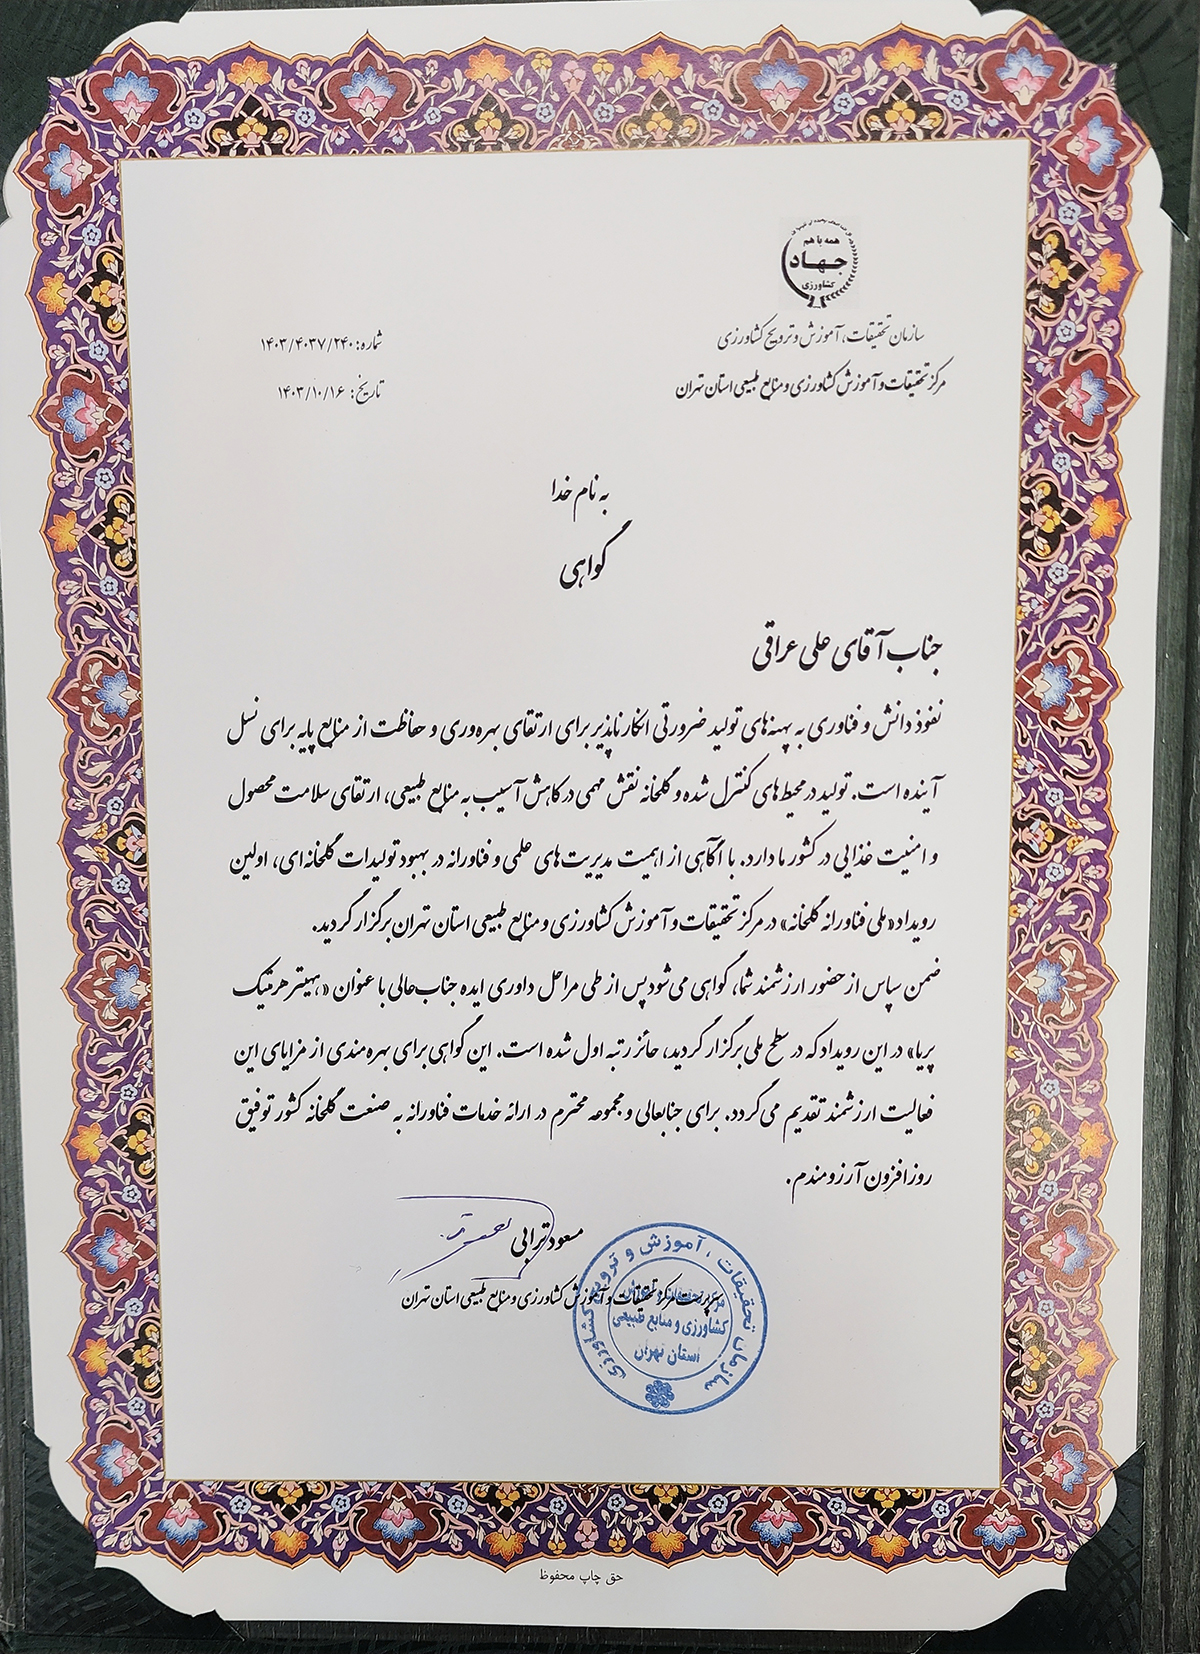 همه با هم
جهاد
کشاورزی
سازمان تحقیقات، آموزش و ترویج کشاورزی
مرکز تحقیقات و آموزش کشاورزی و منابع طبیعی استان تهران
شماره: ۱۴۰۳/۴۰۳۷/۲۴۰
تاریخ: ۱۴۰۳/۱۰/۱۶
به نام خدا
گواهی
جناب آقای علی عراقی
نفوذ دانش و فناوری به پهنه‌های تولید ضرورتی انکارناپذیر برای ارتقای بهره‌وری و حفاظت از منابع پایه برای نسل
آینده است. تولید در محیط‌های کنترل شده و گلخانه نقش مهمی در کاهش آسیب به منابع طبیعی، ارتقای سلامت محصول
و امنیت غذایی در کشور ما دارد. با آگاهی از اهمیت مدیریت‌های علمی و فناورانه در بهبود تولیدات گلخانه‌ای، اولین
رویداد «ملی فناورانه گلخانه» در مرکز تحقیقات و آموزش کشاورزی و منابع طبیعی استان تهران برگزار گردید.
ضمن سپاس از حضور ارزشمند شما، گواهی می‌شود پس از طی مراحل داوری ایده جناب‌عالی با عنوان «هیتر هرمتیک
پریا» در این رویداد که در سطح ملی برگزار گردید، حائز رتبه اول شده است. این گواهی برای بهره‌مندی از مزایای این
فعالیت ارزشمند تقدیم می‌گردد. برای جنابعالی و مجموعه محترم در ارائه خدمات فناورانه به صنعت گلخانه کشور توفیق
روزافزون آرزومندم.
مسعود ترابی
سرپرست مرکز تحقیقات و آموزش کشاورزی و منابع طبیعی استان تهران
سازمان تحقیقات، آموزش و ترویج کشاورزی
کشاورزی و منابع طبیعی
استان تهران
حق چاپ محفوظ